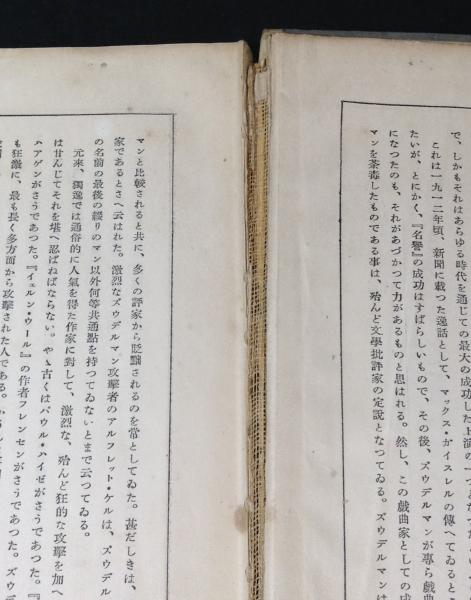 で、しかもそれはあらゆる時代を通じての最大の成功した上演の
これは一九一二年頃、新聞に載つた逸話として、マックス・ガイスレルの傳へてゐるところ
たいが、とにかく、『名譽』の成功はすばらしいもので、その後、ズウデルマンが專ら戲曲
になつたのも、それがあづかつて力があるものと思はれる。然し、この戲曲家としての成
マンを茶毒したものである事は、殆んど文學批評家の定說となつてゐる。ズウデルマンは
マンと比較されると共に、多くの評家から貶黜されるのを常としてゐた。甚だしきは、
家であるとさへ云はれた。激烈なズウデルマン攻擊者のアルフレット・ケルは、ズウデル
の名前の最後の綴りのマン以外何等共通點を持つてゐないとまで云つてゐる。
元來、獨逸では通俗的に人氣を得た作家に對して、激烈な、殆んど狂的な攻擊を加へ
は甘んじてそれを堪へ忍ばねばならない。やゝ古くはパウル・ハイゼがさうであつた。『
ハアゲンがさうであつた。『イェルン・ウール』の作者フレンセンがさうであつた。ズウデ
も狂激に、最も長く多方面から攻擊された人である。